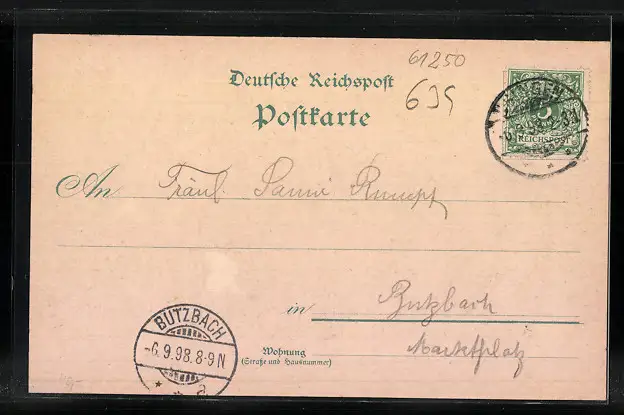 61250
Deutsche Reichspost
635
Postkarte
5
REICHSPOST
An Fräul. Sanni Rumpf
in Butzbach
Wohnung
(Straße und Hausnummer)
Marktplatz
BUTZBACH
-6.9.98.8-9N
a